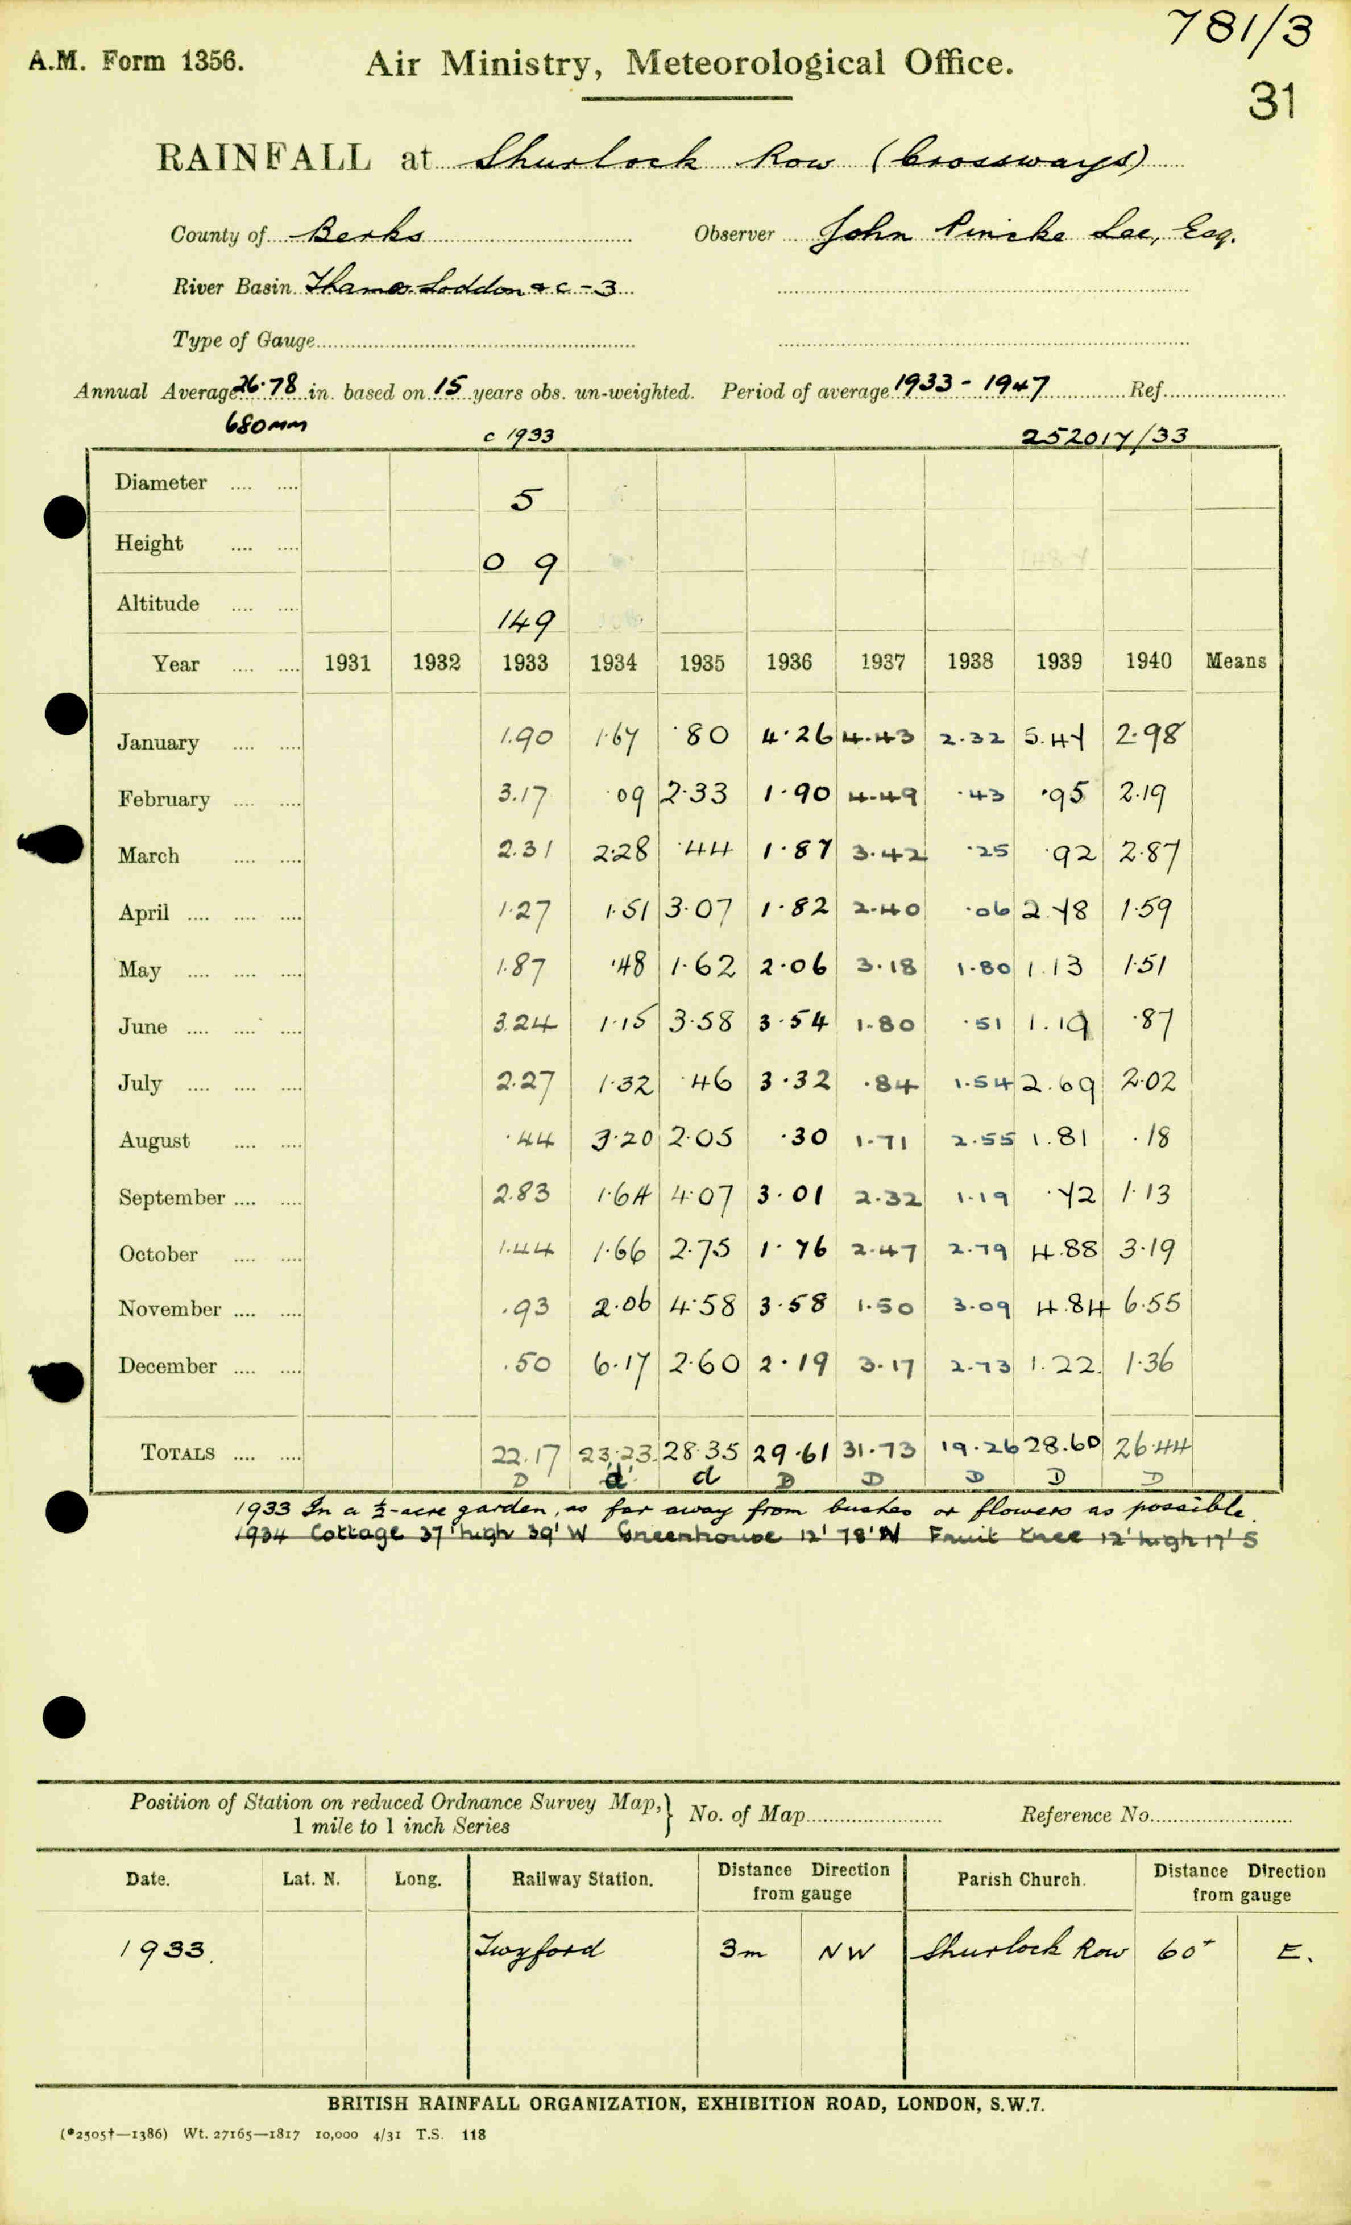 781/3
A.M. Form 1356. Air Ministry, Meteorological Office.
31
RAINFALL at Shurlock Row (Crossways)
County of Berks Observer John Pincke Lee, Esq.
River Basin Thames Loddon &c - 3
Type of Gauge
Annual Average 26.78 in. based on 15 years obs. un-weighted. Period of average 1933 - 1947 Ref.
680mm c 1933 252017/33
Diameter .... .... 5
Height .... .... 0 9
Altitude .... .... 149
Year .... .... 1931 1932 1933 1934 1935 1936 1937 1938 1939 1940 Means
January .... .... 1.90 1.67 .80 4.26 4.43 2.32 5.47 2.98
February .... .... 3.17 .09 2.33 1.90 4.49 .43 .95 2.19
March .... .... 2.31 2.28 .44 1.87 3.42 .25 .92 2.87
April .... .... .... 1.27 1.51 3.07 1.82 2.40 .06 2.78 1.59
May .... .... .... 1.87 .48 1.62 2.06 3.18 1.80 1.13 1.51
June .... .... .... 3.24 1.15 3.58 3.54 1.80 .51 1.19 .87
July .... .... .... 2.27 1.32 .46 3.32 .84 1.54 2.69 2.02
August .... .... .44 3.20 2.05 .30 1.71 2.55 1.81 .18
September .... .... 2.83 1.64 4.07 3.01 2.32 1.19 .72 1.13
October .... .... 1.44 1.66 2.75 1.76 2.47 2.79 4.88 3.19
November .... .... .93 2.06 4.58 3.58 1.50 3.09 4.84 6.55
December .... .... .50 6.17 2.60 2.19 3.17 2.73 1.22 1.36
TOTALS .... .... 22.17 23.23 28.35 29.61 31.73 19.26 28.60 26.44
D d d D D D D D
1933 In a ½-acre garden, as far away from bushes or flowers as possible.
1934 Cottage 37' high 39' W Greenhouse 12' 78' N Fruit tree 12' high 17' S
Position of Station on reduced Ordnance Survey Map,
1 mile to 1 inch Series } No. of Map Reference No.
Date. Lat. N. Long. Railway Station. Distance Direction from gauge Parish Church. Distance Direction from gauge
1933. Twyford 3m NW Shurlock Row 60ˣ E.
BRITISH RAINFALL ORGANIZATION, EXHIBITION ROAD, LONDON, S.W.7.
(*2505†—1386) Wt. 27165—1817 10,000 4/31 T.S. 118